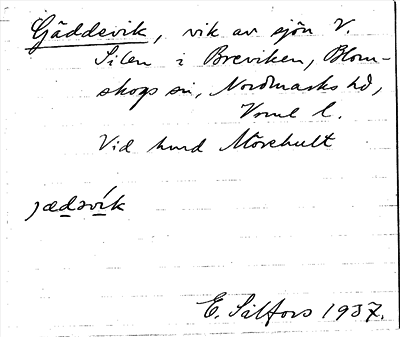 Gäddsvik, vik av sjön V.
Silen i Breviken, Blom-
skogs sn, Nordmarks hd,
Vrml l.
Vid hmd Morehult
jædəvík
E. Salfors 1937.